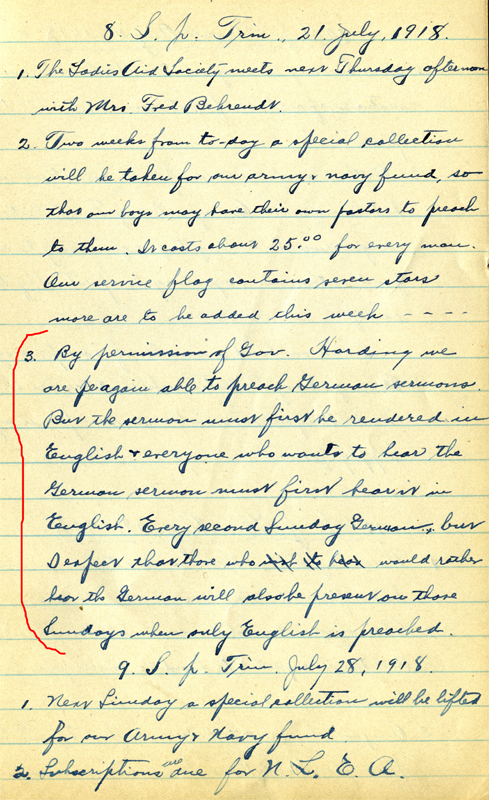 8. S. p. Trin., 21 July, 1918.
1. The Ladies Aid Society meets next Thursday afternoon
with Mrs. Fred Behrendt.
2. Two weeks from to-day a special collection
will be taken for our army & navy fund, so
that our boys may have their own pastors to preach
to them. It costs about 25.00 for every man.
Our service flag contains seven stars
more are to be added this week - - - -
3. By permission of Gov. Harding we
are again able to preach German sermons.
But the sermon must first be rendered in
English & everyone who wants to hear the
German sermon must first hear it in
English. Every second Sunday German, but
I expect that those who wish to hear would rather
hear the German will also be present on those
Sundays when only English is preached.
9. S. p. Trin. July 28, 1918.
1. Next Sunday a special collection will be lifted
for our Army & Navy fund.
2. Subscriptions are due for N. L. E. A.